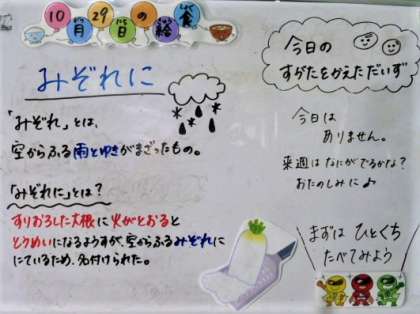 10月29日の給食
がつ にち きゅうしょく
みぞれに
「みぞれ」とは、
空からふる雨とゆきがまざったもの。
「みぞれに」とは？
すりおろした大根に火がとおると
とうめいになるようすが、空からふるみぞれに
にているため、名付けられた。
今日の
すがたをかえただいず
今日は
ありません。
来週はなにがでるかな？
おたのしみに♪
まずは ひとくち
たべてみよう